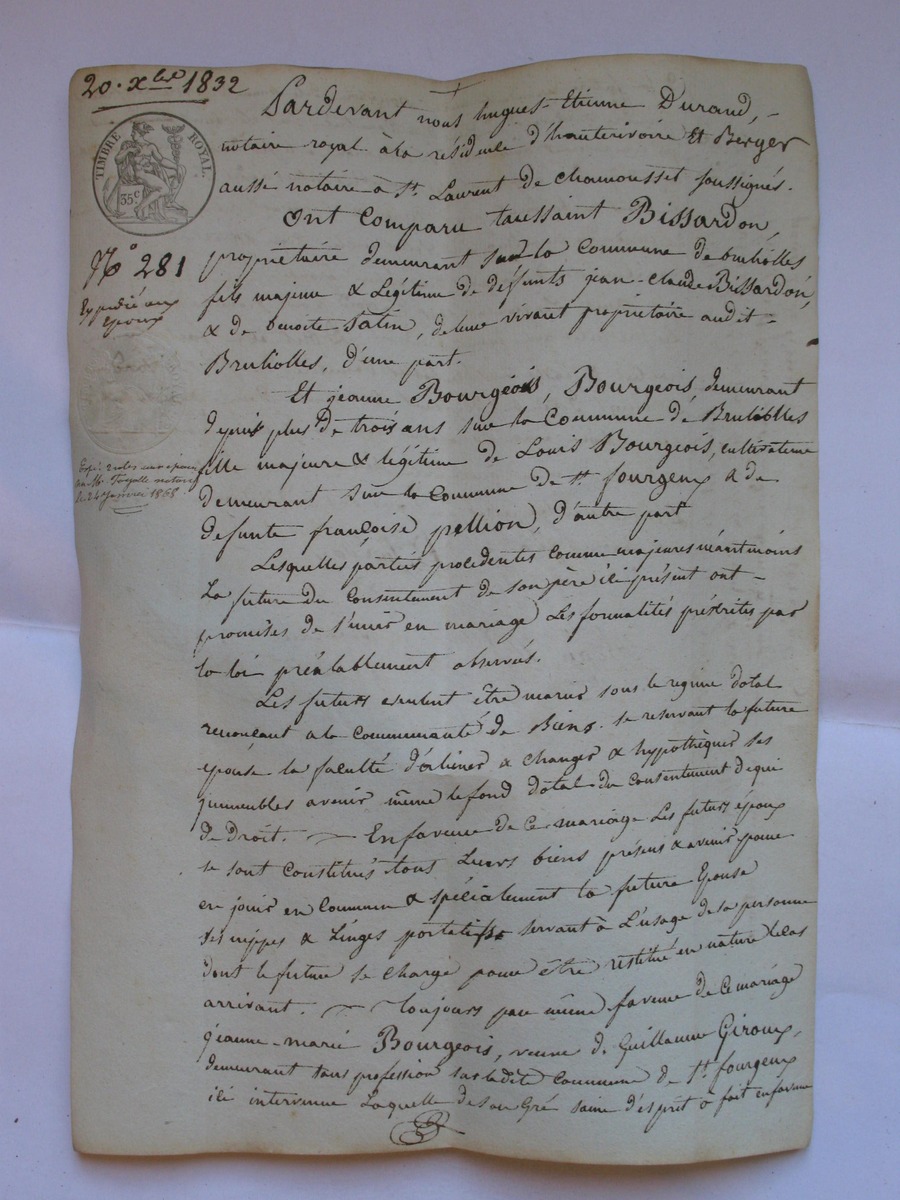 20. Xbre 1832
TIMBRE ROYAL.
35c
No 281
Expédié aux
époux
le 24 janvier 1868
Pardevant nous hugues Etienne Durand,
notaire royal à la résidence d'hauterivoire Et Berger
aussi notaire à St. Laurent de Chamousset soussignés.
Ont Comparu toussaint Bissardon,
propriétaire demeurant sur la Commune de brulliolles
fils majeur & Légitime de défunts jean-Claude Bissardon,
& de benoite Satin, de leur vivant propriétaire audit
Brulliolles, d'une part.
Et jeanne Bourgeois, Bourgeois, demeurant
depuis plus de trois ans sur la Commune de Brulliolles
fille majeure & légitime de Louis Bourgeois, cultivateur
demeurant sur la Commune de St. fourgeux & de
defunte françoise pellion, d'autre part
Lesquelles parties procedentes comme majeures néantmoins
La future du Consentement de son père ici présent ont
promises de s'unir en mariage Les formalités préscrites par
la loi préalablement observés.
Les futurs veulent être mariés sous le regime dotal
renonçant a la Communauté de Biens. se reservant la future
épouse la faculté d'aliéner & changer & hypothèquer ses
immeubles avenir même le fond dotal du consentement de qui
de Droit. En faveur de ce mariage Les futurs époux
se sont constitués tous Leurs biens présens & avenir pour
en jouir en Commun & spécialement la future Epouse
ses nippes & Linges portatifs servant à L'usage de sa personne
dont le futur se charge pour être restitué en nature le cas
arrivant. Toujours par même faveur de ce mariage
jeanne-marie Bourgeois, veuve de Guillaume Giroux,
demeurant sans profession sur ladite Commune de St. fourgeux
ici intervenue Laquelle de son Gré saine d'esprit à fait en faveur